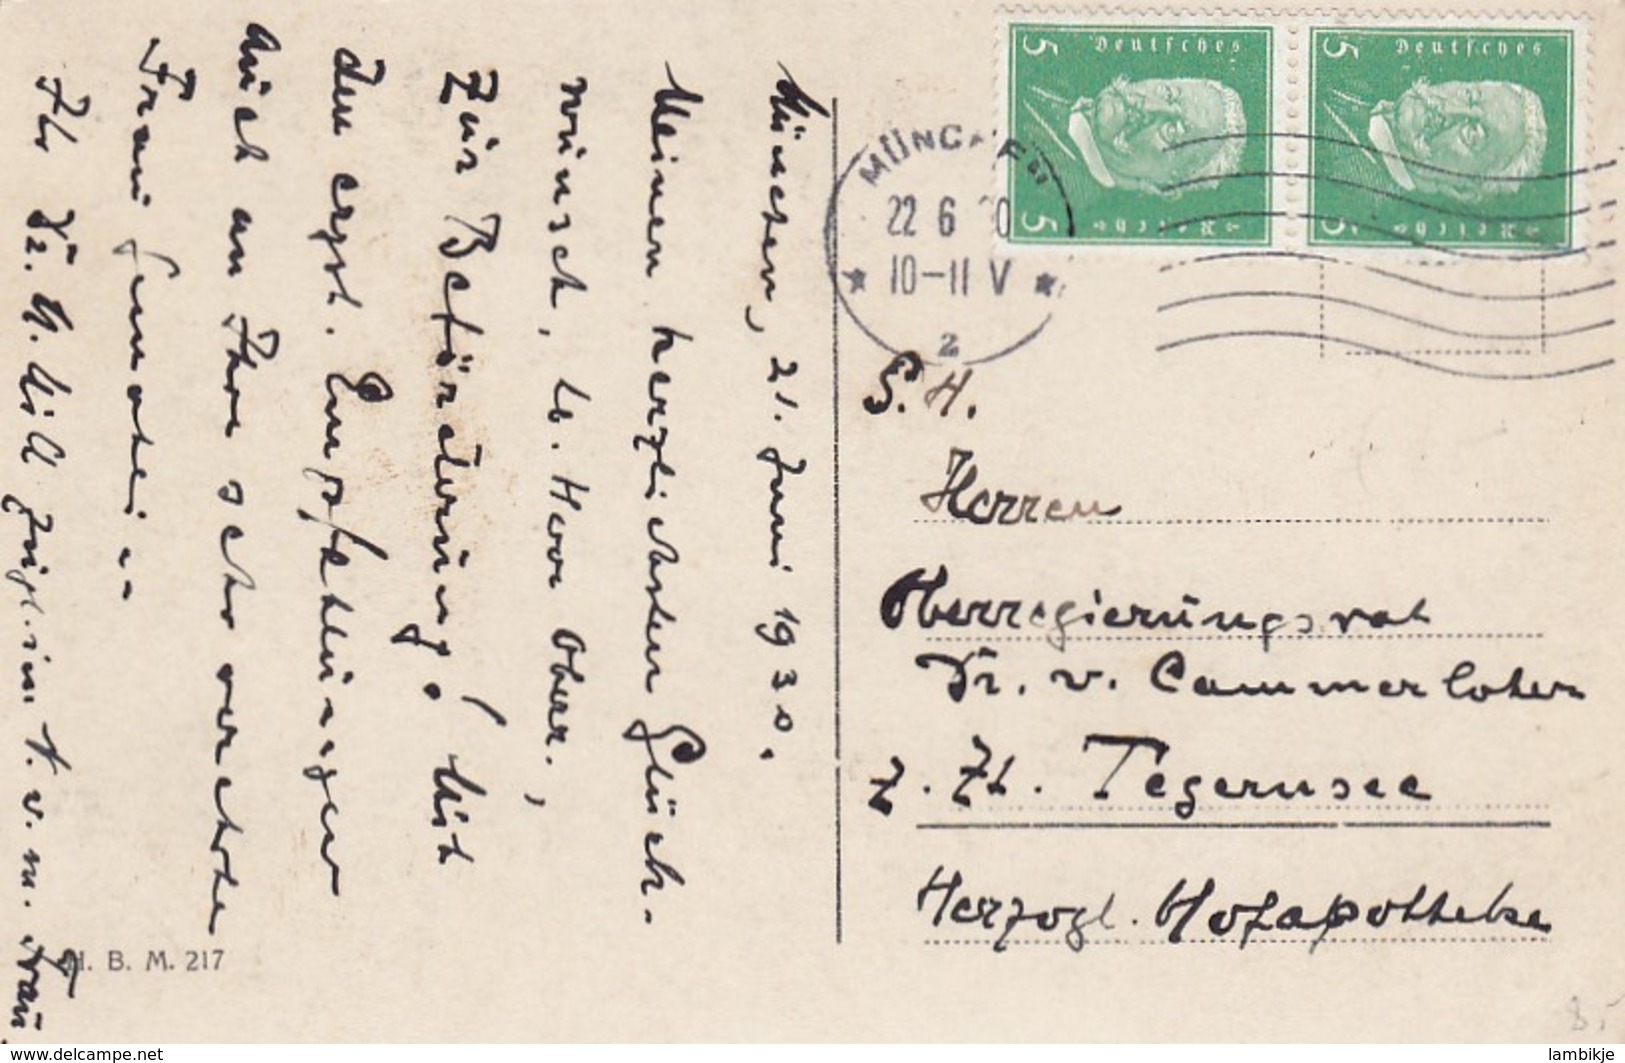 München, 21. Juni 1930.
Meinen herzlichsten Glück-
wunsch, lb. Herr Oberr.,
zur Beförderung! Mit
den ergst. Empfehlungen
auch an Ihre sehr verehrte
Frau Gemahlin
Ihr
zugl. im N. v. m. Frau
H. B. M. 217
Deutsches
Reich
5
5
Deutsches
Reich
5
5
MÜNCHEN
22 6 30
10-11 V
2
S. H.
Herren
Oberregierungsrat
Dr. v. Cammerloher
z. Zt. Tegernsee
Herzogl. Hofapotheke
8.-
www.delcampe.net
lambikje